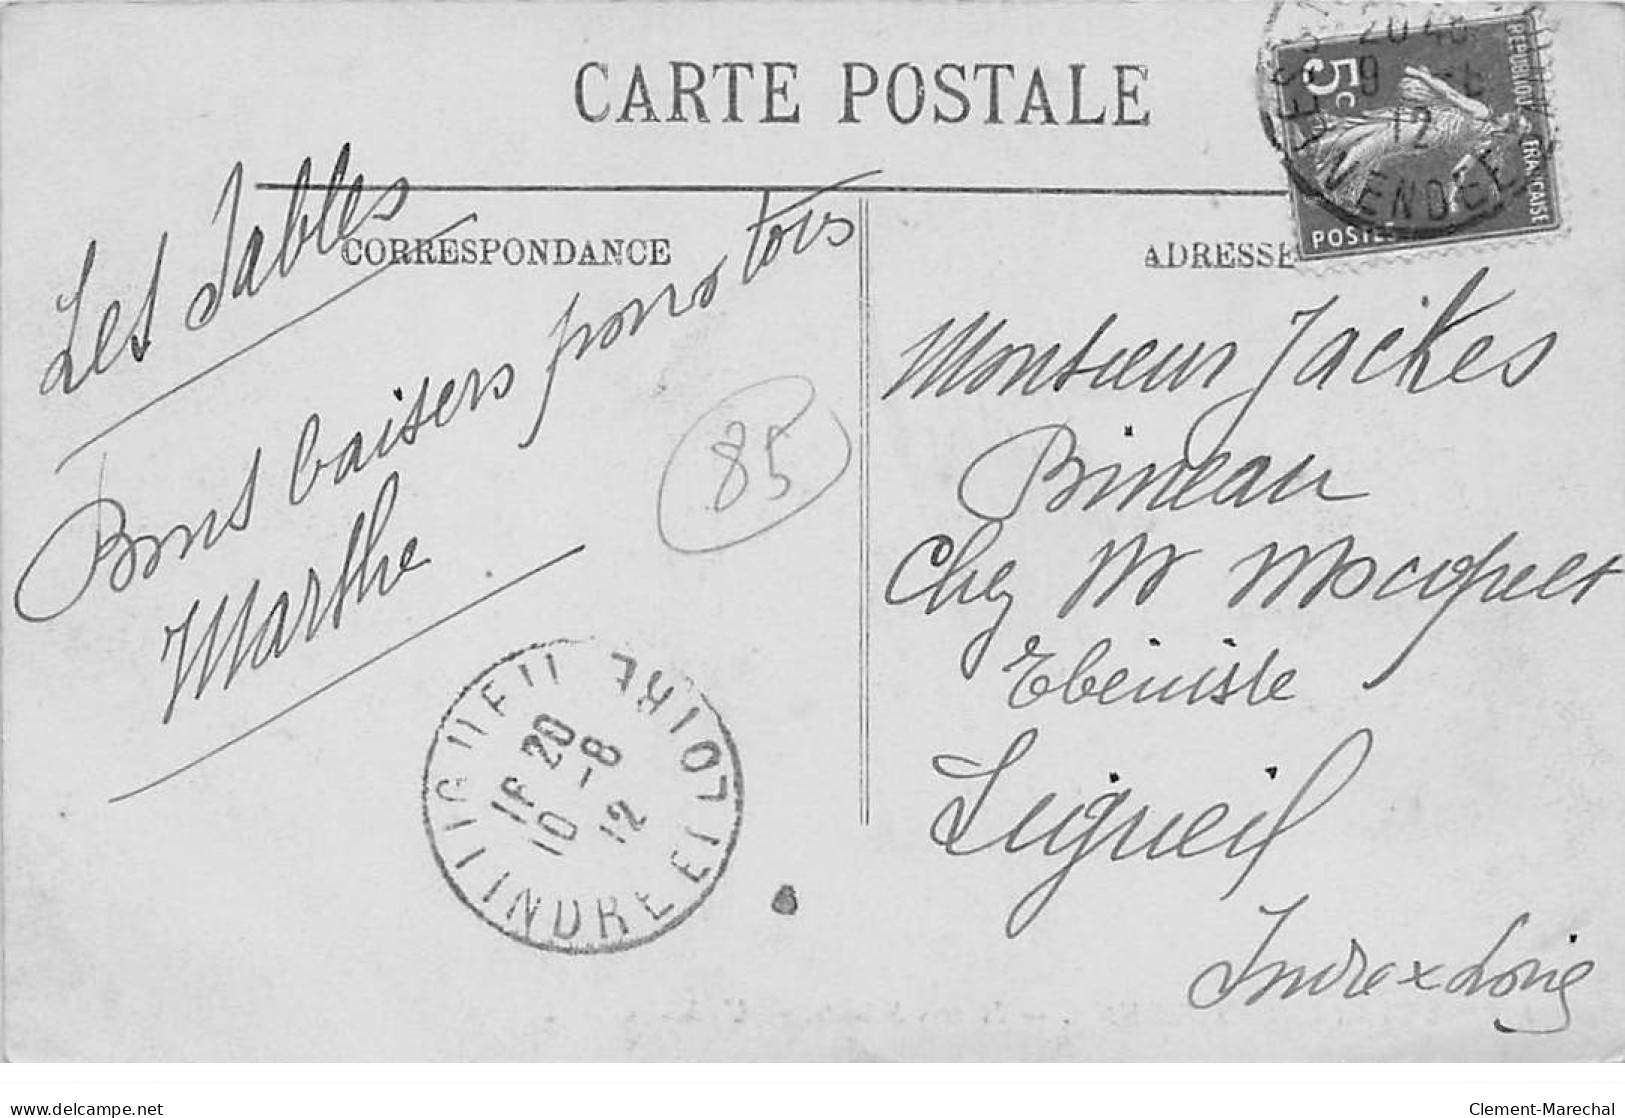 CARTE POSTALE
CORRESPONDANCE
Les Sables
Bons baisers pour tois
Marthe
85
LIGUEIL
INDRE ET LOIRE
20
10 -8
12
ADRESSE
5c
REPUBLIQUE FRANCAISE
POSTES
20 45
9
12
LES
VENDEE
Monsieur Jackes
Bineau
Chez Mr Mocquet
Ebéniste
Ligueil
Indre x Loire
delcampe.net
Clement-Marechal